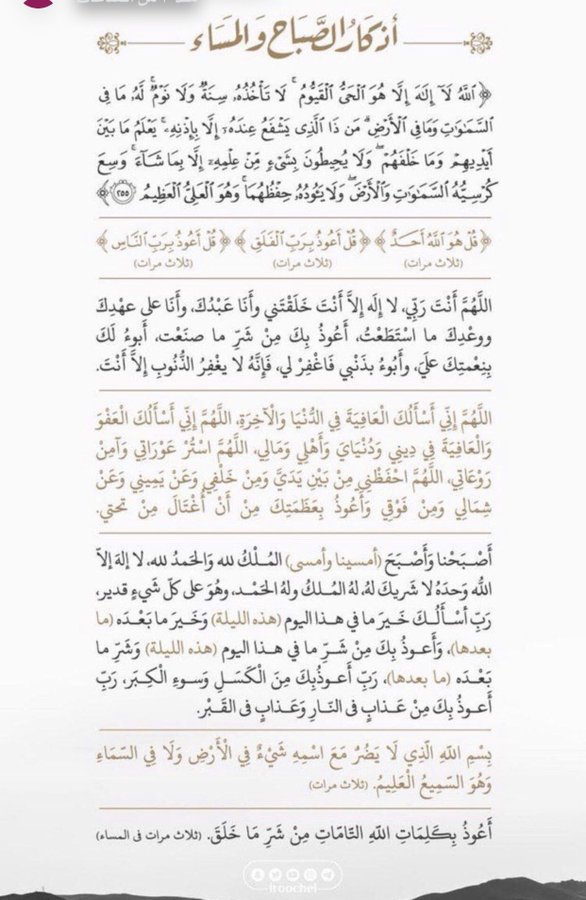 أذكار الصَّبَاح وَالمَسَاء
﴿ ٱللَّهُ لَآ إِلَٰهَ إِلَّا هُوَ ٱلْحَىُّ ٱلْقَيُّومُ ۚ لَا تَأْخُذُهُۥ سِنَةٌ وَلَا نَوْمٌ ۚ لَّهُۥ مَا فِى
ٱلسَّمَٰوَٰتِ وَمَا فِى ٱلْأَرْضِ ۗ مَن ذَا ٱلَّذِى يَشْفَعُ عِندَهُۥٓ إِلَّا بِإِذْنِهِۦ ۚ يَعْلَمُ مَا بَيْنَ
أَيْدِيهِمْ وَمَا خَلْفَهُمْ ۖ وَلَا يُحِيطُونَ بِشَىْءٍ مِّنْ عِلْمِهِۦٓ إِلَّا بِمَا شَآءَ ۚ وَسِعَ
كُرْسِيُّهُ ٱلسَّمَٰوَٰتِ وَٱلْأَرْضَ ۖ وَلَا يَـُٔودُهُۥ حِفْظُهُمَا ۚ وَهُوَ ٱلْعَلِىُّ ٱلْعَظِيمُ ٢٥٥ ﴾
﴿ قُلْ هُوَ ٱللَّهُ أَحَدٌ ﴾ ﴿ قُلْ أَعُوذُ بِرَبِّ ٱلْفَلَقِ ﴾ ﴿ قُلْ أَعُوذُ بِرَبِّ ٱلنَّاسِ ﴾
(ثلاث مرات) (ثلاث مرات) (ثلاث مرات)
اللَّهُمَّ أَنْتَ رَبِّي، لا إِلَه إِلاَّ أَنْتَ خَلَقْتَني وأَنَا عَبْدُكَ، وأَنَا على عهْدِكَ
ووعْدِكَ ما اسْتَطَعْتُ، أَعُوذُ بِكَ مِنْ شَرِّ ما صنَعْت، أَبوءُ لَكَ
بِنِعْمتِكَ علَيَ، وأَبُوءُ بذَنْبي فَاغْفِرْ لي، فَإِنَّهُ لا يغْفِرُ الذُّنُوبِ إِلاَّ أَنْتَ.
اللَّهُمَّ إِنِّي أَسْأَلُكَ الْعَافِيَةَ فِي الدُّنْيَا وَالْآخِرَةِ، اللَّهُمَّ إِنِّي أَسْأَلُكَ الْعَفْوَ
وَالْعَافِيَةَ فِي دِينِي وَدُنْيَايَ وَأَهْلِي وَمَالِي، اللَّهُمَّ اسْتُرْ عَوْرَاتِي وَآمِنْ
رَوْعَاتِي، اللَّهُمَّ احْفَظْنِي مِنْ بَيْنِ يَدَيَّ وَمِنْ خَلْفِي وَعَنْ يَمِينِي وَعَنْ
شِمَالِي وَمِنْ فَوْقِي وَأَعُوذُ بِعَظَمَتِكَ مِنْ أَنْ أُغْتَالَ مِنْ تحتي.
أَصْبَحْنا وَأَصْبَحَ (أمسينا وأمسى) المُلْكُ لله وَالحَمدُ لله، لا إلهَ إلاّ
اللّه وَحدَهُ لا شَريكَ لهُ، لهُ المُلكُ ولهُ الحَمْد، وهُوَ على كلّ شَيءٍ قدير،
رَبِّ أسْأَلُكَ خَيرَ ما في هذا اليوم (هذه الليلة) وَخَيرَ ما بَعْدَه (ما
بعدها)، وَأَعوذُ بِكَ مِنْ شَرِّ ما في هذا اليوم (هذه الليلة) وَشَرِّ ما
بَعْدَه (ما بعدها)، رَبِّ أَعوذُبِكَ مِنَ الْكَسَلِ وَسوءِ الْكِبَر، رَبِّ
أَعوذُ بِكَ مِنْ عَذابٍ في النّارِ وَعَذابٍ في القَبْر.
بِسْمِ اللّهِ الَّذِي لَا يَضُرُّ مَعَ اسْمِهِ شَيْءٌ فِي الْأَرْضِ وَلَا فِي السَّمَاءِ
وَهُوَ السَّمِيعُ الْعَلِيمُ. (ثلاث مرات)
أَعُوذُ بِكَلِمَاتِ اللّهِ التَّامَّاتِ مِنْ شَرِّ مَا خَلَقَ. (ثلاث مرات في المساء)